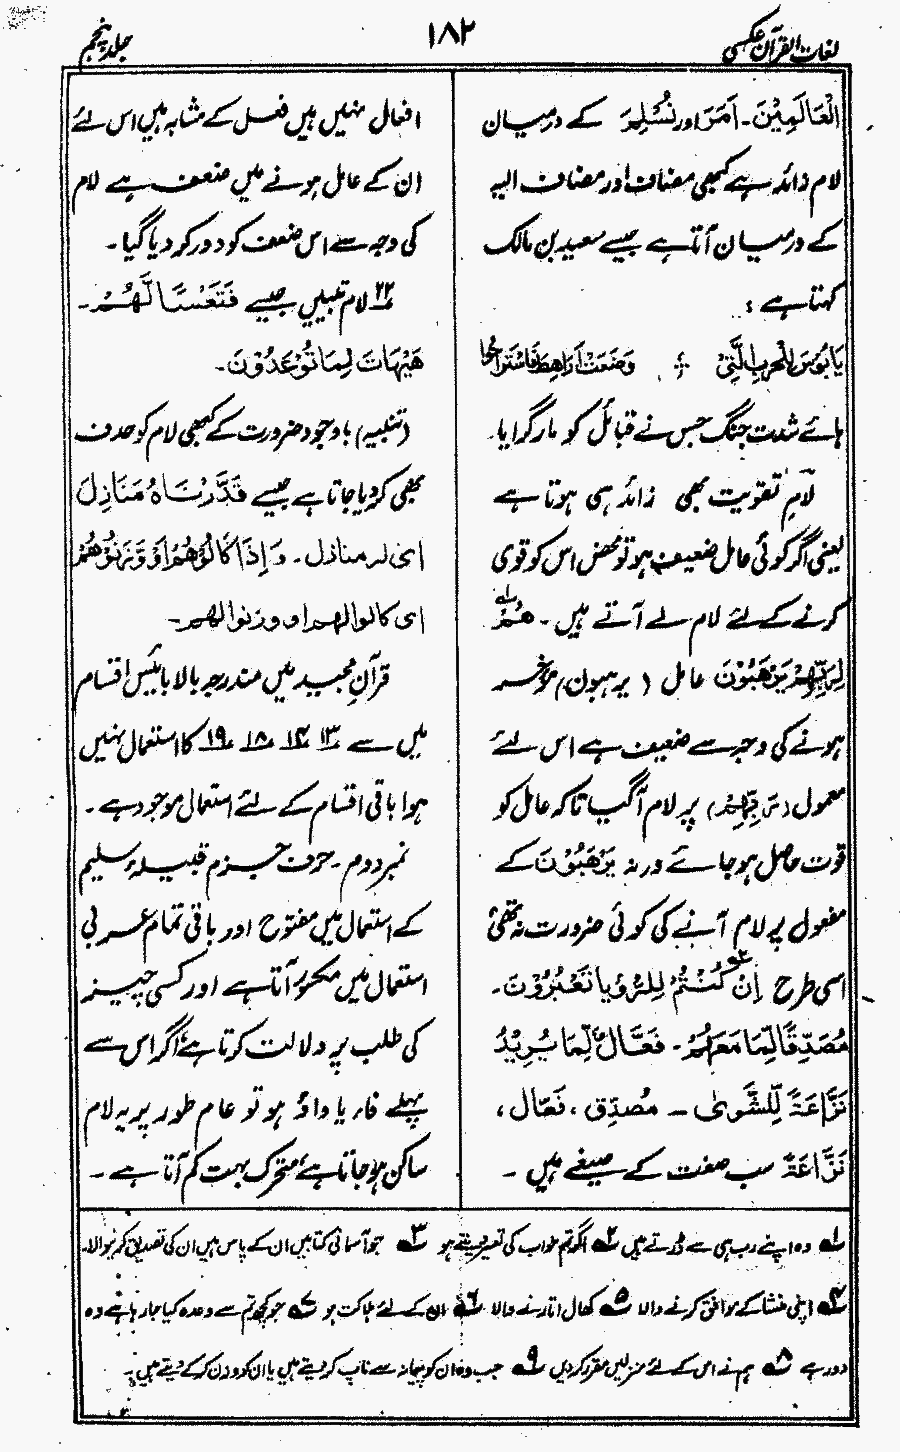 لغات القرآن عکسی
۱۸۲
جلد پنجم
الْعَالَمِیْنَ۔ اَمَرَ اور نُسْلِمَ کے درمیان
لام زائد ہے کبھی مضاف اور مضاف الیہ
کے درمیان آتا ہے جیسے سعید بن مالک
کہتا ہے :
یَا بُؤْسَ لِلْحَرْبِ الَّتِیْ ؞ وَضَعَتْ اَرَاهِطَ فَاسْتَرَاحُوْا
ہائے شدت جنگ جس نے قبائل کو مار گرایا۔
لامِ تقویت بھی زائد ہی ہوتا ہے
یعنی اگر کوئی عامل ضعیف ہو تو محض اس کو قوی
کرنے کے لئے لام لے آتے ہیں۔ هُمْ
لِرَبِّهِمْ یَرْهَبُوْنَ عامل (یرہبون) مؤخر
ہونے کی وجہ سے ضعیف ہے اس لئے
معمول (رَبِّهِمْ) پر لام آگیا تاکہ عامل کو
قوت حاصل ہو جائے ورنہ یَرْهَبُوْنَ کے
مفعول پر لام آنے کی کوئی ضرورت نہ تھی
اسی طرح اِنْ كُنْتُمْ لِلرُّؤْیَا تَعْبُرُوْنَ۔
مُصَدِّقًا لِّمَا مَعَهُمْ۔ فَعَّالٌ لِّمَا یُرِیْدُ
نَزَّاعَةً لِّلشَّوٰی۔ مُصدِّق، فَعّال،
نَزَّاعَةً سب صفت کے صیغے ہیں۔
افعال نہیں ہیں فعل کے مشابہ ہیں اس لئے
ان کے عامل ہونے میں ضعف ہے لام
کی وجہ سے اس ضعف کو دور کر دیا گیا۔
۲۲ لام تبیین جیسے فَتَعْسًا لَّهُمْ۔
هَیْهَاتَ لِمَا تُوْعَدُوْنَ۔
(تنبیہ) باوجود ضرورت کے کبھی لام کو حذف
بھی کر دیا جاتا ہے جیسے قَدَّرْنَاهُ مَنَازِلَ
ای لہ منازل۔ وَ اِذَا كَالُوْهُمْ اَوْ وَّزَنُوْهُمْ
ای کالوا لھم او وزنوا لھم۔
قرآنِ مجید میں مندرجہ بالا بائیس اقسام
میں سے ۱۳ ۱۴ ۱۸ ۱۹ کا استعمال نہیں
ہوا باقی اقسام کے لئے استعمال موجود ہے۔
نمبر دوم۔ حرف جزم قبیلۂ سلیم
کے استعمال میں مفتوح اور باقی تمام عربی
استعمال میں مکسور آتا ہے اور کسی چیز
کی طلب پر دلالت کرتا ہے، اگر اس سے
پہلے فار یا واؤ ہو تو عام طور پر یہ لام
ساکن ہو جاتا ہے، متحرک بہت کم آتا ہے۔
۱ وہ اپنے رب ہی سے ڈرتے ہیں ۲ اگر تم خواب کی تعبیر دیتے ہو ۳ جو آسمانی کتابیں ان کے پاس ہیں ان کی تصدیق کرنیوالا۔
۴ اپنی منشا کے موافق کرنے والا ۵ کھال اتارنے والا ۶ ان کے لئے ہلاکت ہو ۷ جو کچھ تم سے وعدہ کیا جا رہا ہے وہ
دور ہے ۸ ہم نے اس کے لئے منزلیں مقرر کر دیں ۹ جب وہ ان کو پیمانہ سے ناپ کر دیتے ہیں یا ان کو وزن کر کے دیتے ہیں۔